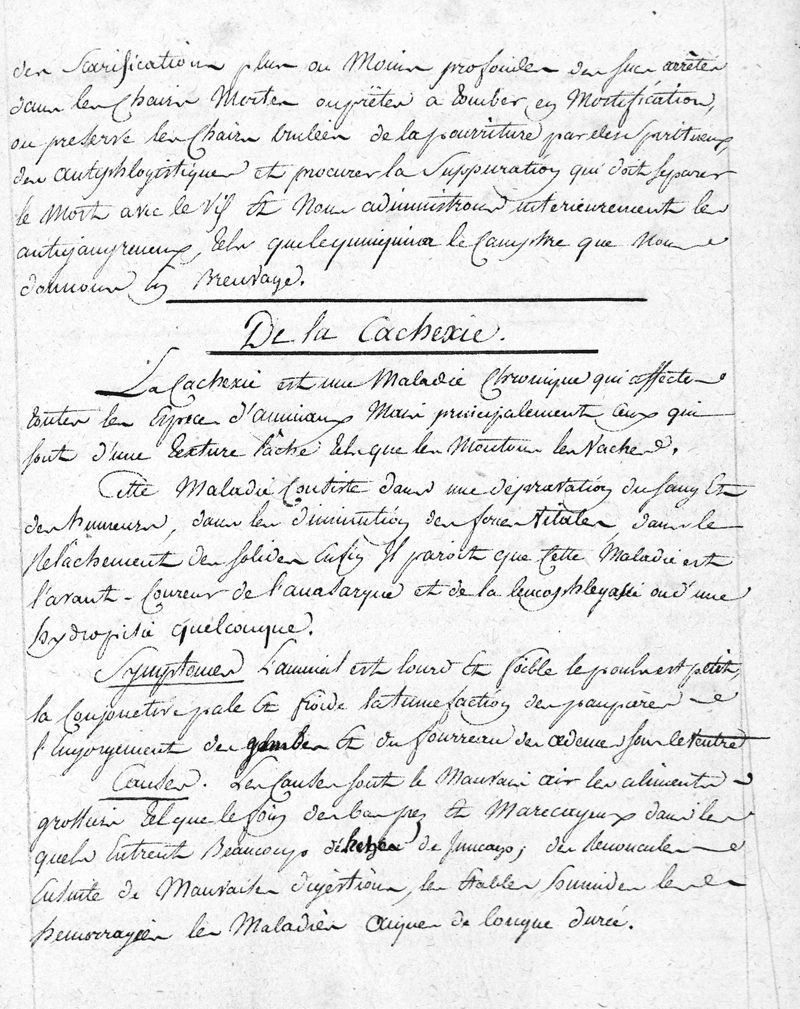 des Scarifications plus ou Moins profondes des sucs arrêtés
dans les Chairs Mortes ou prêtes a tomber en Mortification,
ou préserve les Chairs brulées de la pourriture par des Spiritueux
des antiphlogistiques et procurer la Suppuration qui doit séparer
le Mort avec le Vif Et Nous administrons interieurement les
antigangreneux, tels que le quinquina le Camphre que Nous
donnons en Breuvage.
De la Cachexie.
La Cachexie est une Maladie Chronique qui affecte
toutes les Espèces d'animaux Mais principalement ceux qui
sont d'une texture lâche tels que les Moutons les Vaches.
Cette Maladie Consiste dans une dépravation du sang Et
des humeurs, dans les diminution des forces Vitales dans le
Relâchement des solides Enfin Il paroit que Cette Maladie est
l'avant-Coureur de l'anasarque et de la leucophlegasie ou d'une
hydropisie quelconque.
Symptomes L'animal est lourd Et foible le pouls est petit,
la Conjonctive pale Et froide la tumefaction des paupières
l'Engorgement des jambes Et du fourreau des œdemes sous le Ventre
Causes. Les Causes sont le Mauvais air les aliments
grossiers tel que le foin des bas prés Et Marecageux dans les
quels Entrent Beaucoup de de Juncago, des Renoncules
Ensuite de Mauvaises digestions, les Etables humides les
hemorragies les Maladies aigues de longue durée.